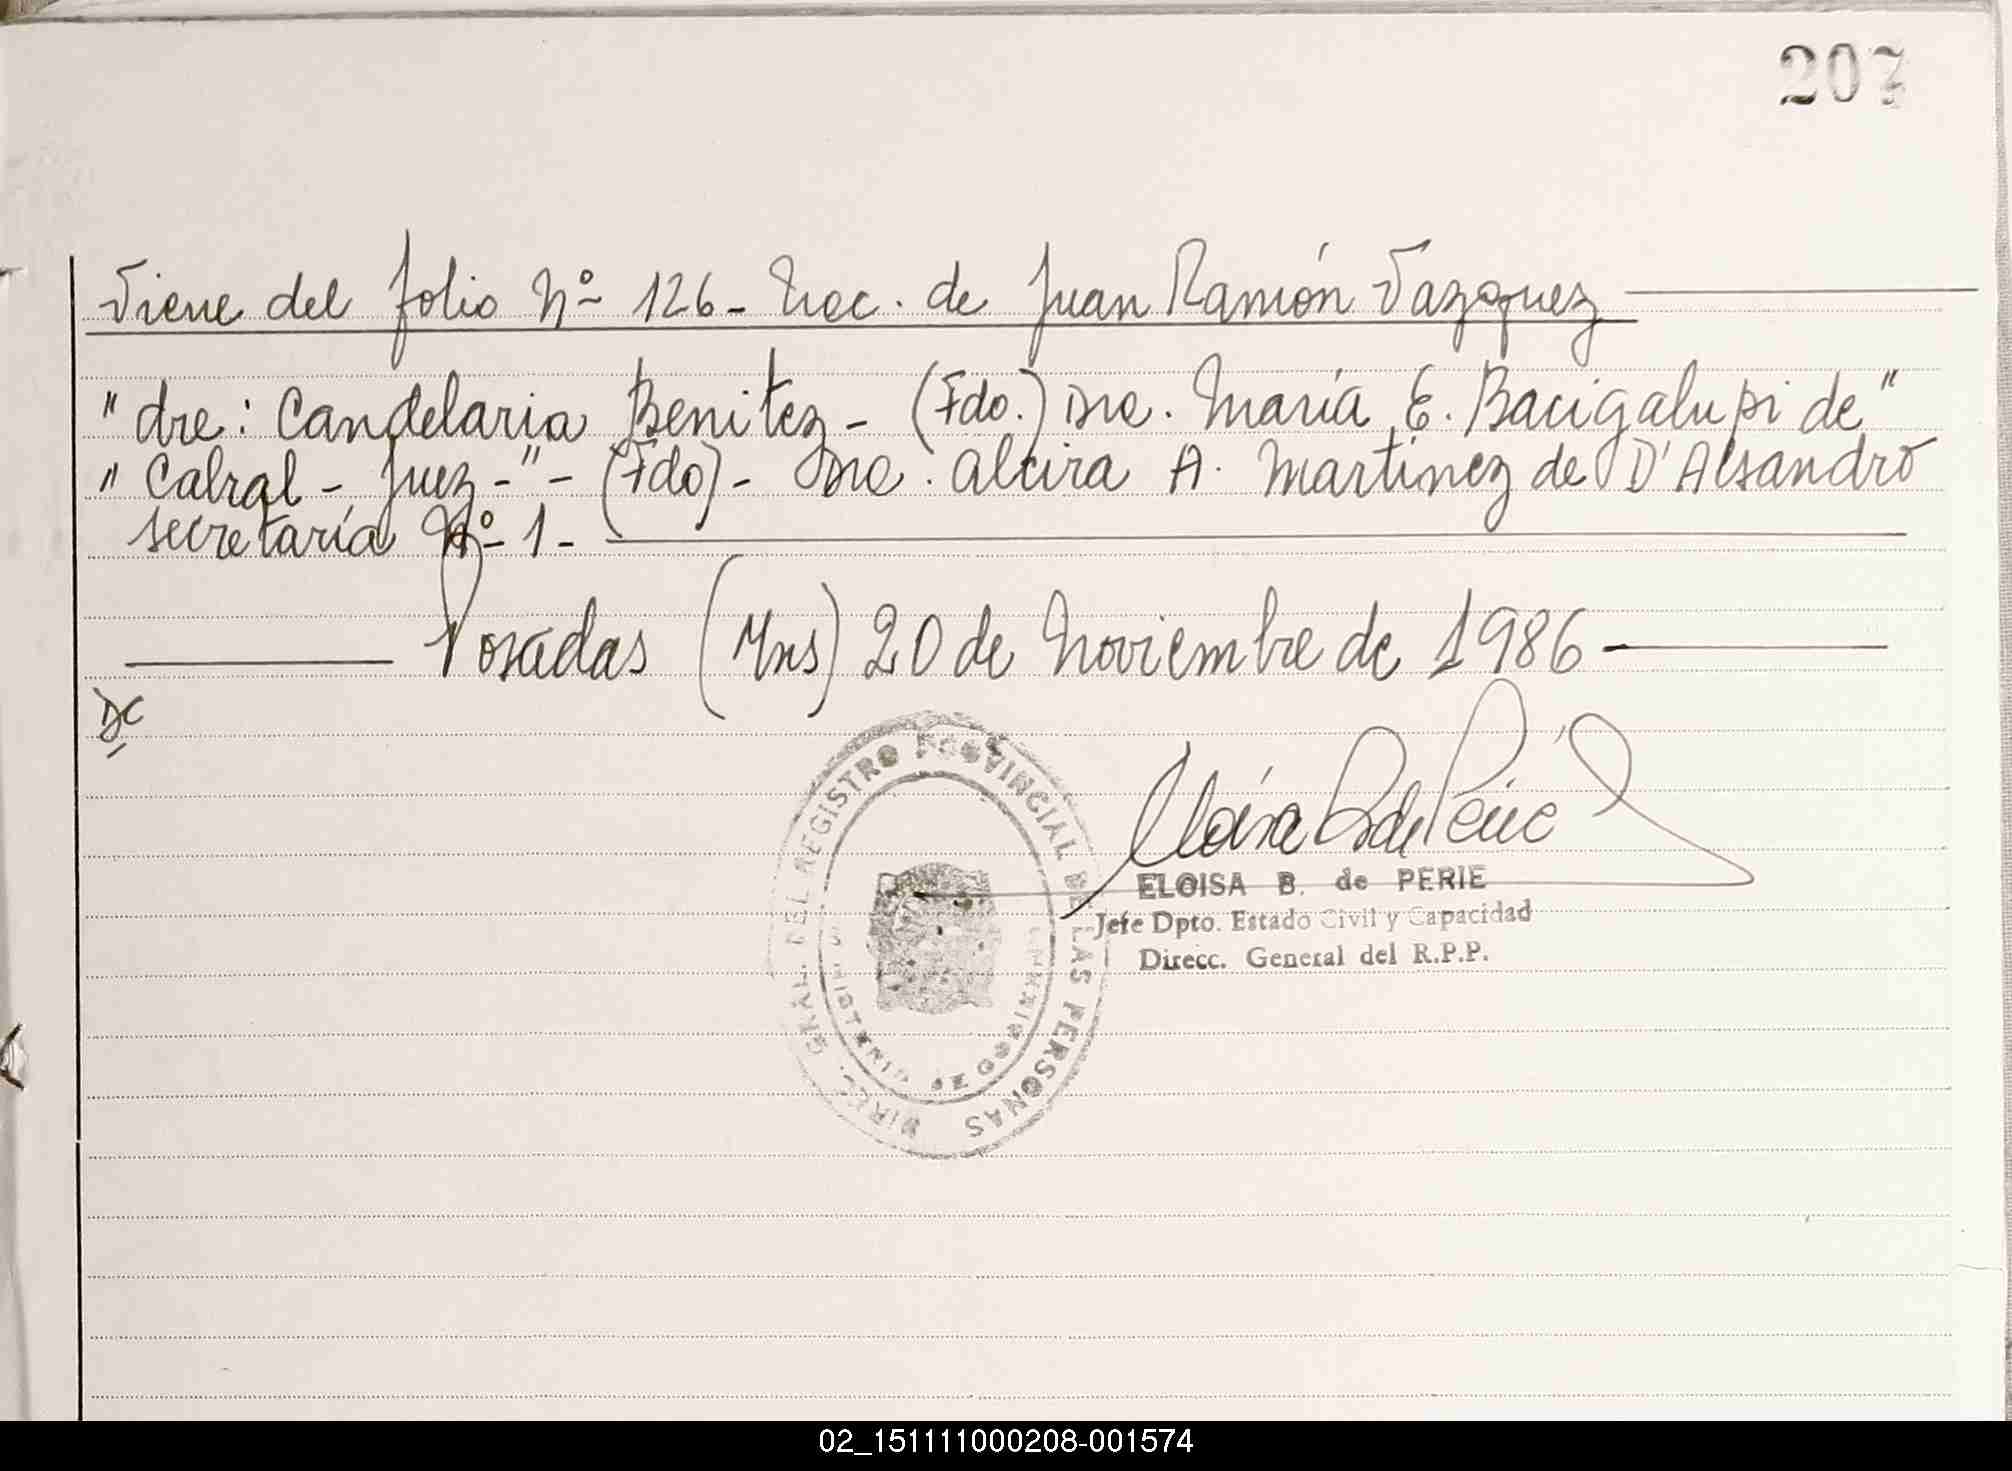 207
Viene del folio Nº 126 - Nac. de Juan Ramón Vazquez
" dre: Candelaria Benitez - (Fdo.) Dra. María E. Bacigalupi de "
" Cabral - Juez - " - (Fdo) - Dra. Alcira A. Martinez de D'Alsandro
secretaría Nº 1 -
Posadas (Mns) 20 de Noviembre de 1986
DC
DIREC. GRAL. DEL REGISTRO PROVINCIAL DE LAS PERSONAS
ELOISA B. de PERIE
Jefe Dpto. Estado Civil y Capacidad
Direcc. General del R.P.P.
02_151111000208-001574